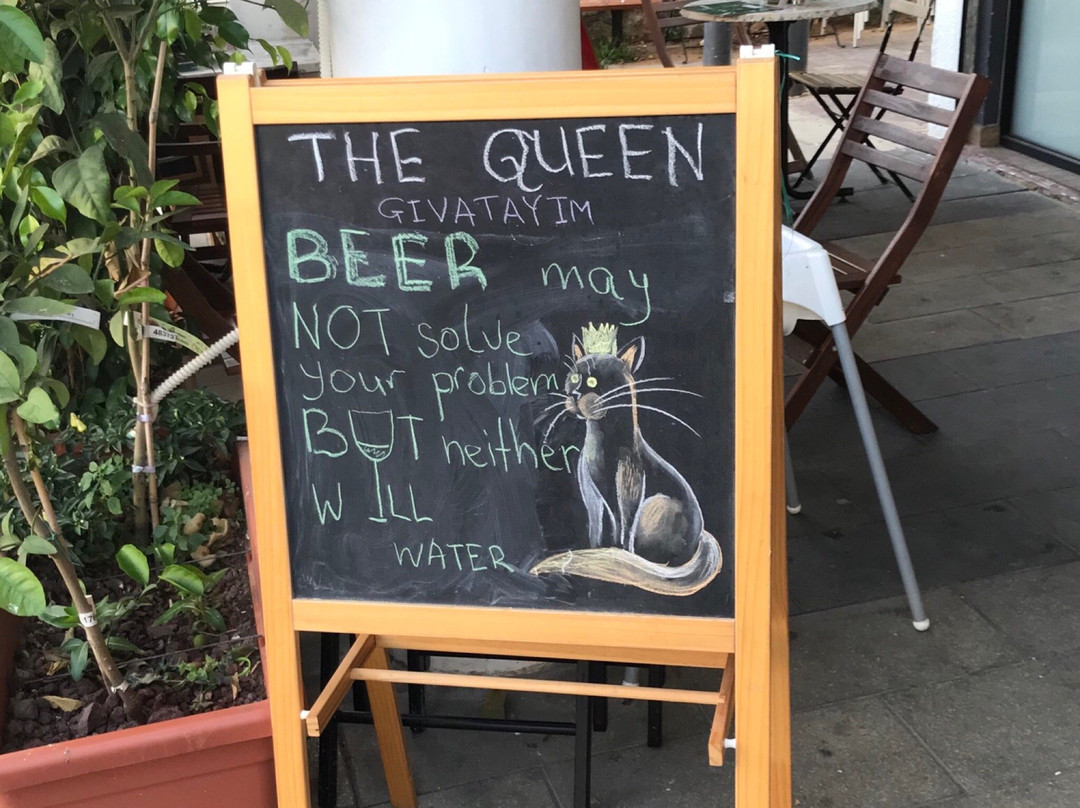 THE QUEEN
GIVATAYIM
BEER may
NOT solve
your problem
BUT neither
WILL
WATER